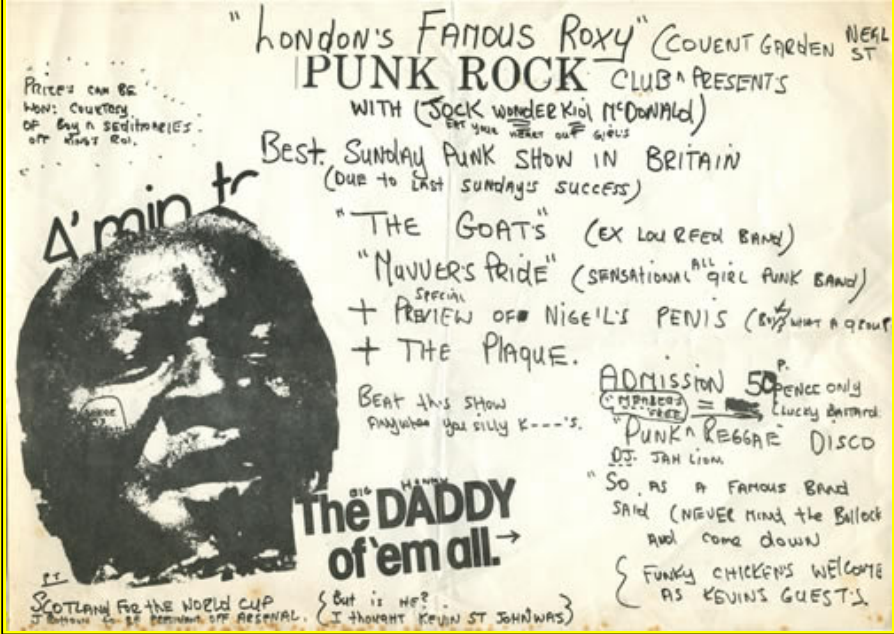 "LONDON'S FAMOUS ROXY" (COVENT GARDEN NEAL ST
PUNK ROCK CLUB ^ PRESENTS
PRIZE'S CAN BE
WON: COURTESY
OF BOY ^ SEDITIONARIES.
OFF KING'S RD.
WITH (JOCK WONDER KID McDONALD)
EAT YOUR HEART OUT GIRLS
BEST. SUNDAY PUNK SHOW IN BRITAIN
(DUE TO LAST SUNDAY'S SUCCESS)
4' min tr
"THE GOATS" (EX LOU REED BAND)
"MUVVER'S PRIDE" (SENSATIONAL ALL GIRL PUNK BAND)
+ SPECIAL PREVIEW OF NIGEIL'S PENIS (WHAT A GROUP
+ THE PLAQUE.
BEAT this SHOW
ANYWHERE you SILLY K----'S.
ADMISSION 50 P. PENCE ONLY
(MEMBERS FREE) = LUCKY BASTARD
"PUNK ^ REGGAE" DISCO
DJ. JAH LION
"SO AS A FAMOUS BAND
SAID (NEVER MIND the BOLLOCK
AND COME DOWN
{ FUNKY CHICKENS WELCOME
AS KEVINS GUEST'S
BIG HANDY
The DADDY
of 'em all. →
P.T
SCOTLAND FOR the WORLD CUP
OFF ARSENAL.
{ But is HE?
I thought KEVIN ST JOHN WAS }